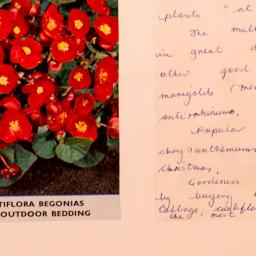 TIFLORA BEGONIAS
OUTDOOR BEDDING
plants " at
The mult
in great d
other good
marigolds (Fren
antirrhinums.
Popular
chrysanthemums
Christmas.
Gardeners
by buying
cabbage, cauliflo
the most